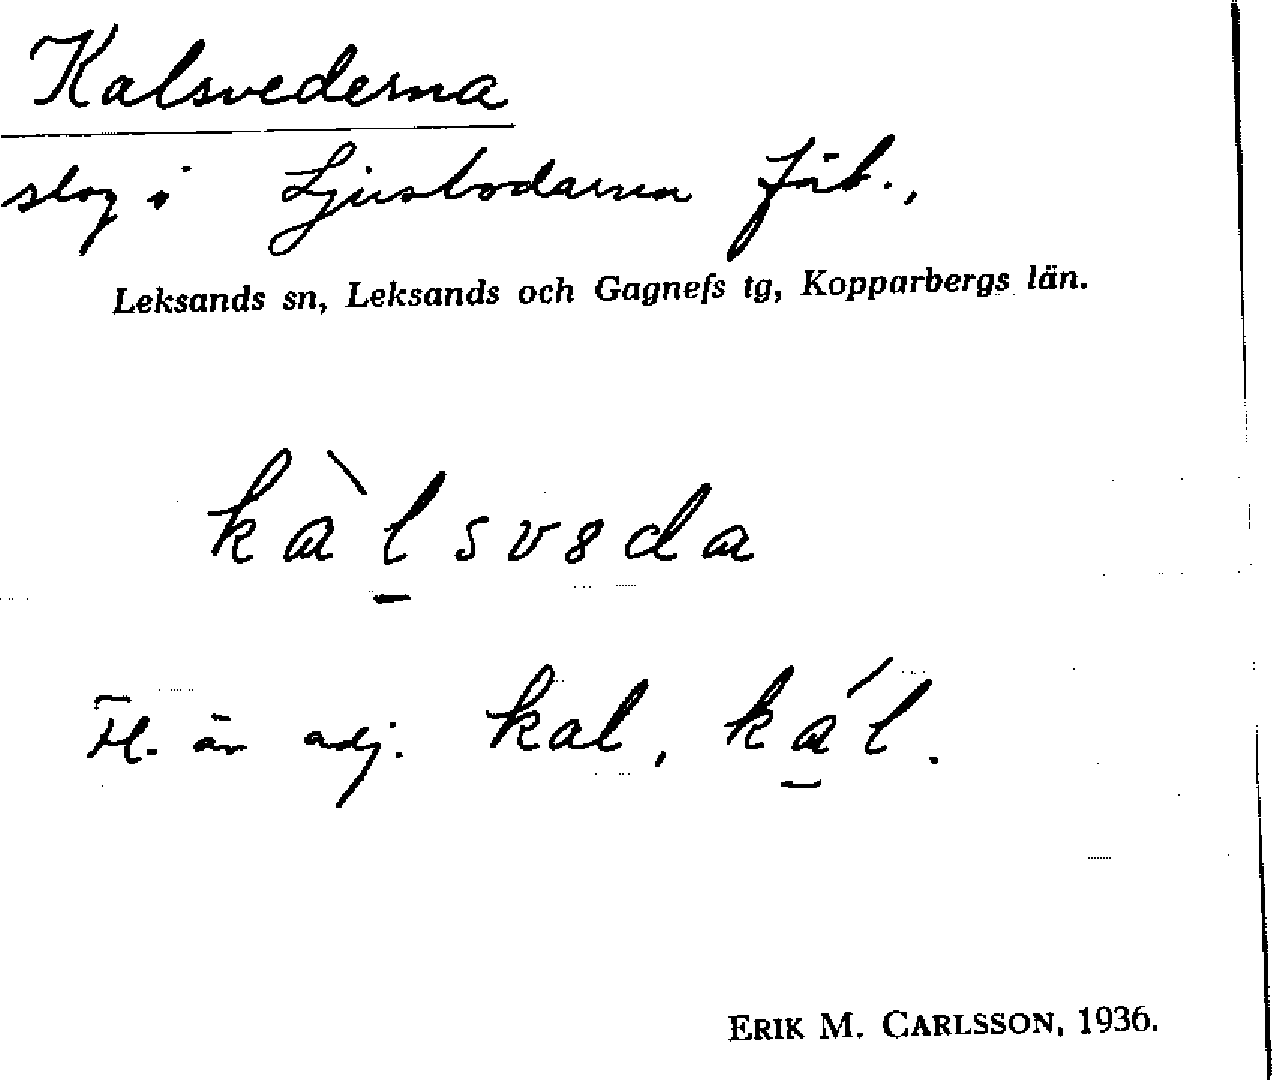 Kalsvederna
slog i Ljusbodarna fäb.,
Leksands sn, Leksands och Gagnefs tg, Kopparbergs län.
kàl̲svɛda
Fl. är adj. kal, ká̲l.
ERIK M. CARLSSON, 1936.